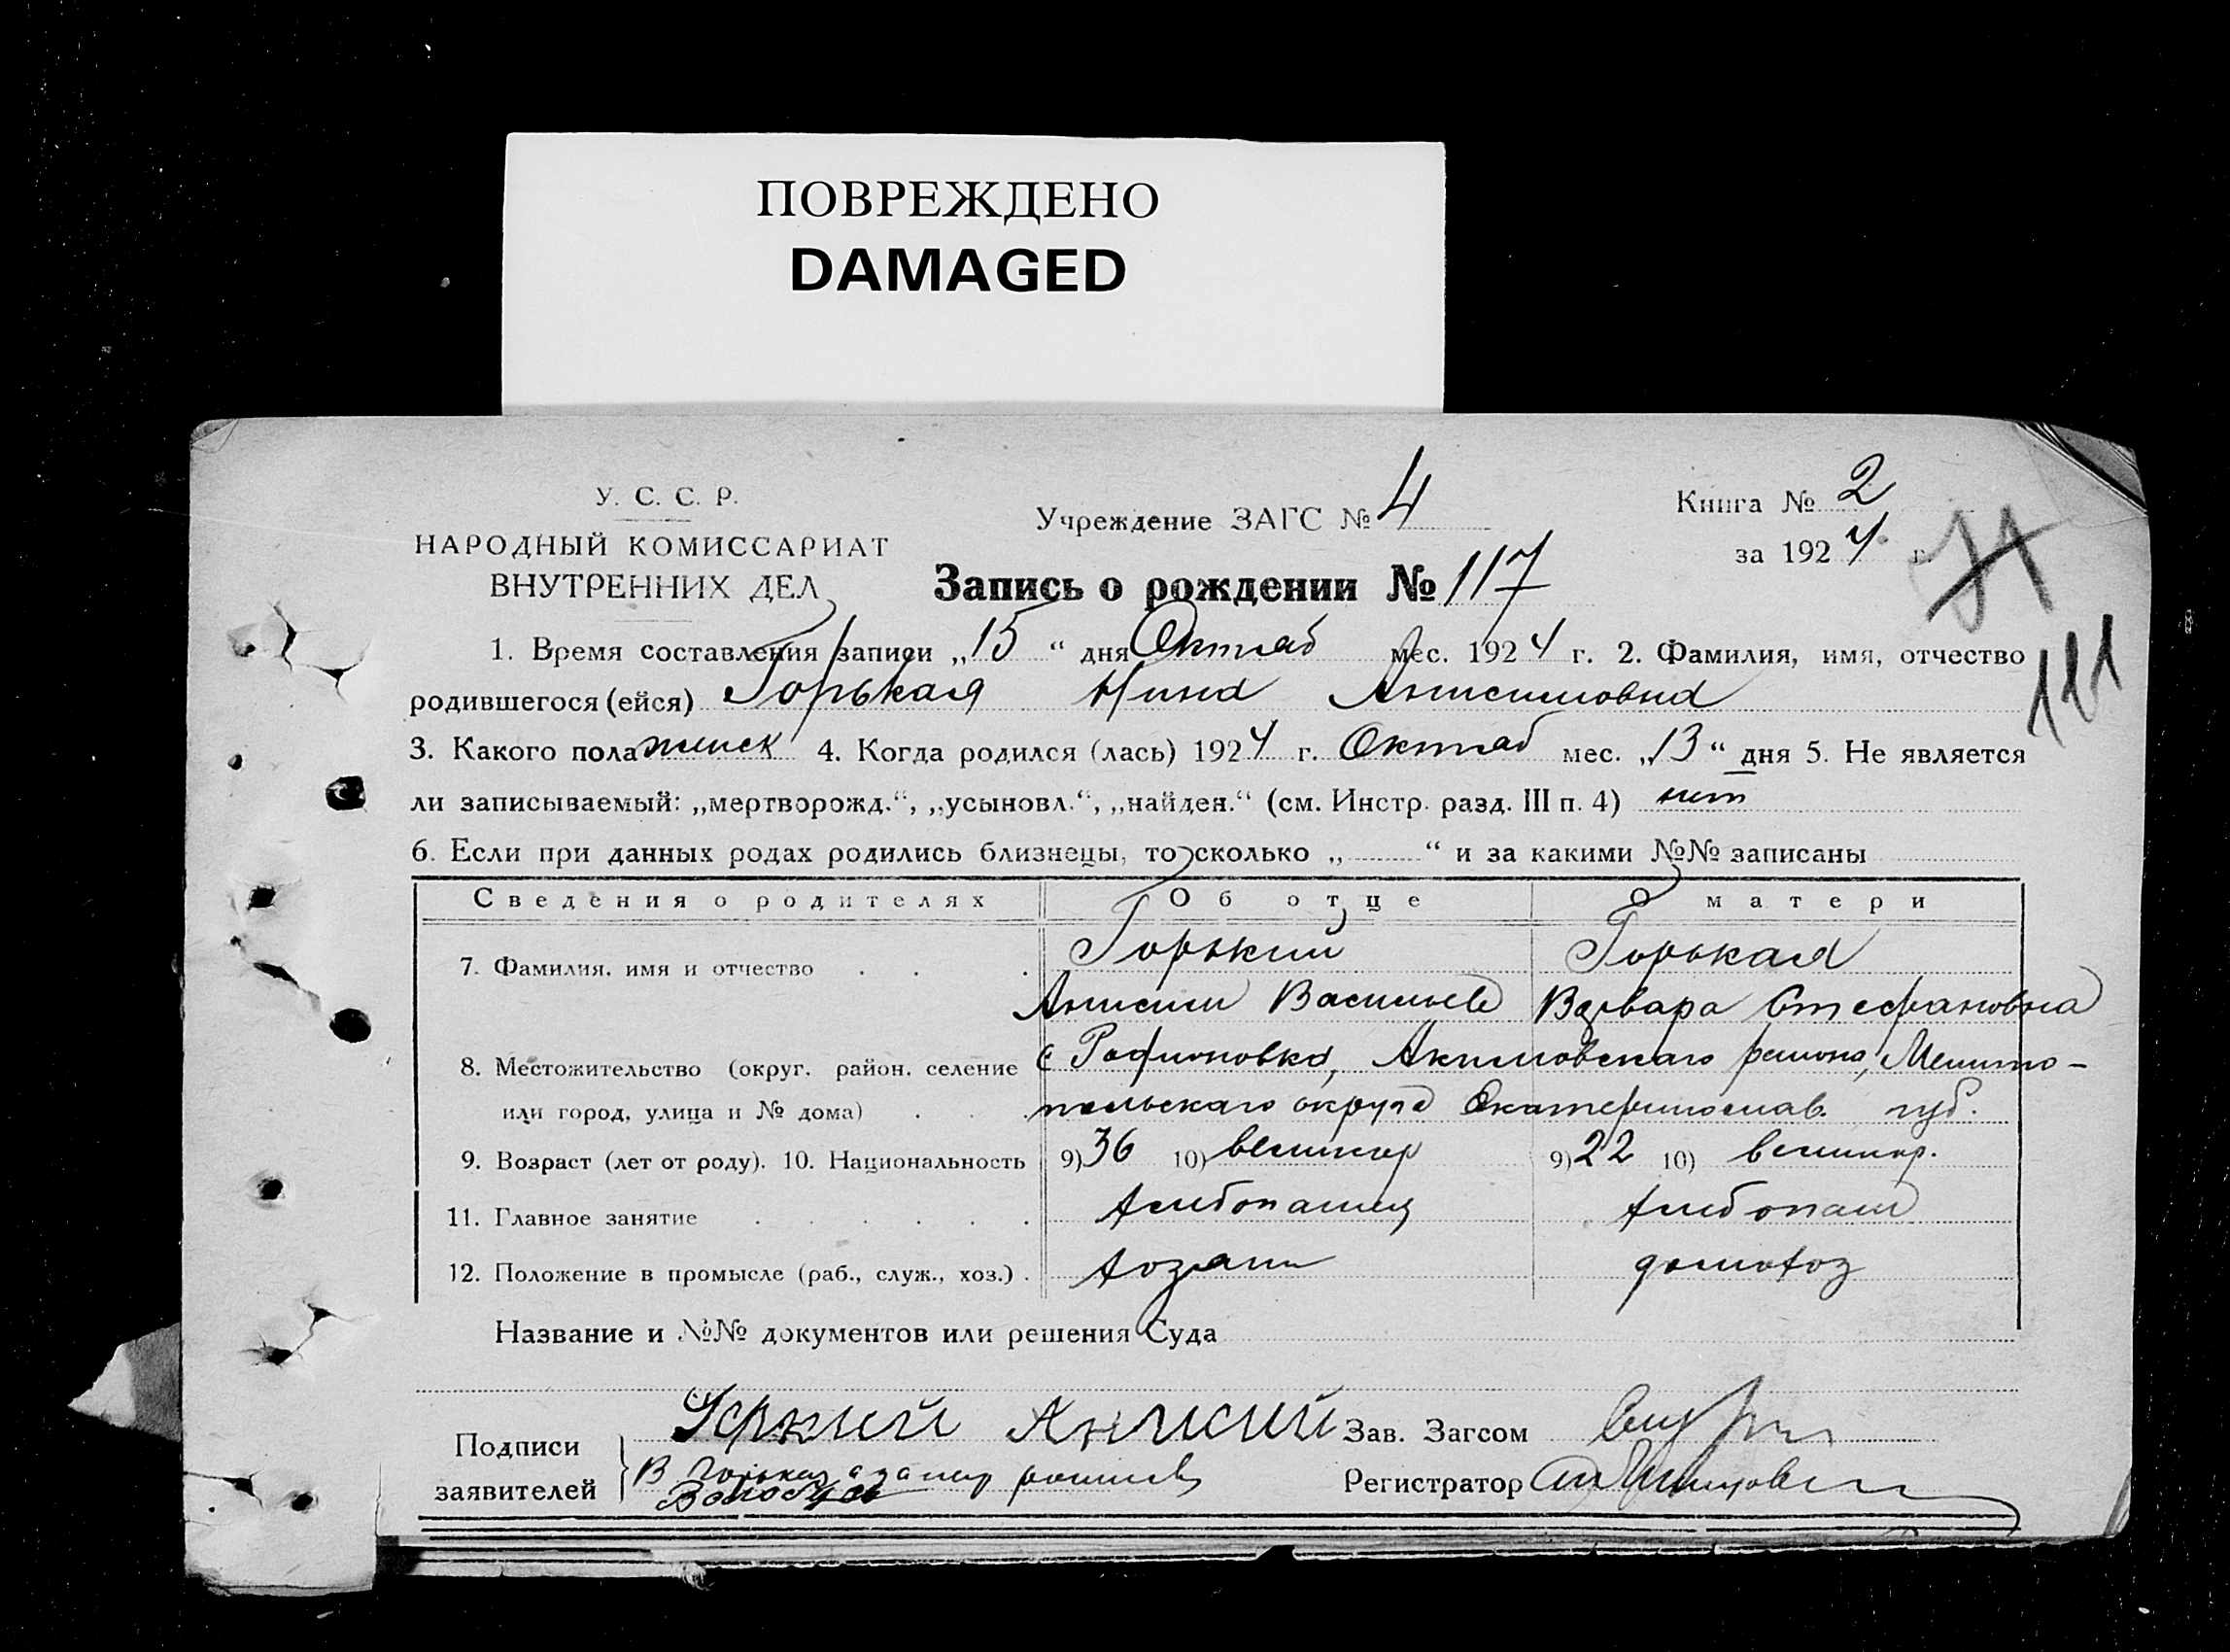 ПОВРЕЖДЕНО
DAMAGED
У. С. С. Р.
НАРОДНЫЙ КОМИССАРИАТ
ВНУТРЕННИХ ДЕЛ
Учреждение ЗАГС № 4
Книга № 2
за 1924 г.
71
Запись о рождении № 117
1. Время составления записи „15“ дня Октяб мес. 1924 г. 2. Фамилия, имя, отчество
121
родившегося (ейся) Горькая Нина Анисимовна
3. Какого пола женск 4. Когда родился (лась) 1924 г. Октяб мес. „13“ дня 5. Не является
ли записываемый: „мертворожд.“, „усыновл.“, „найден.“ (см. Инстр. разд. III п. 4) нет
6. Если при данных родах родились близнецы, то сколько „ “ и за какими №№ записаны
Сведения о родителях Об отце О матери
7. Фамилия, имя и отчество Горький Горькая
Анисим Васильев Варвара Стефановна
8. Местожительство (округ. район. селение с Родионовка, Акимовского района, Мелито-
или город, улица и № дома) польскаго округа Екатеринослав. губ.
9. Возраст (лет от роду). 10. Национальность 9) 36 10) великор 9) 22 10) великор.
11. Главное занятие хлебопашец хлебопаш
12. Положение в промысле (раб., служ., хоз.) хозяин домохоз
Название и №№ документов или решения Суда
Подписи
заявителей
Горкий Анисий
В Горькая
Зав. Загсом
Регистратор